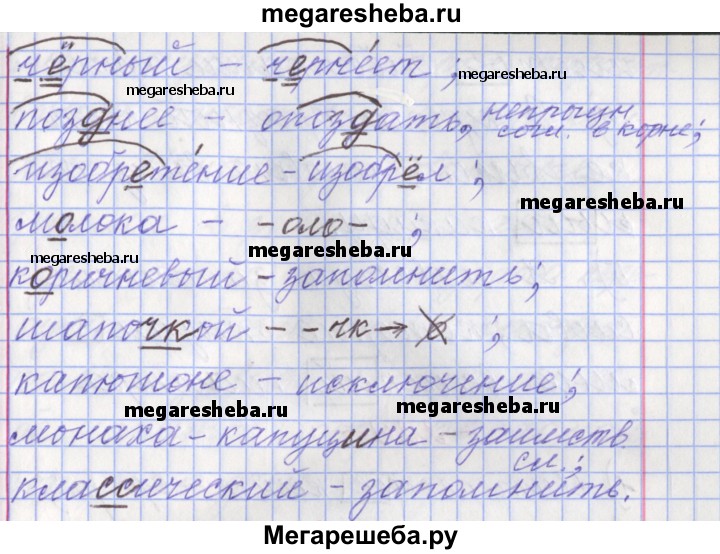 megaresheba.ru
чёрный – чернеет;
megaresheba.ru megaresheba.ru
позднее – опоздать, непроизн. согл. в корне;
изобретение – изобрёл;
megaresheba.ru
молока – -оло- ;
megaresheba.ru megaresheba.ru
коричневый – запомнить;
шапочкой – -чк → ь ;
капюшоне – исключение;
megaresheba.ru megaresheba.ru
монаха – капуцина – заимств.
сл.;
классический – запомнить.
Мегарешеба.ру